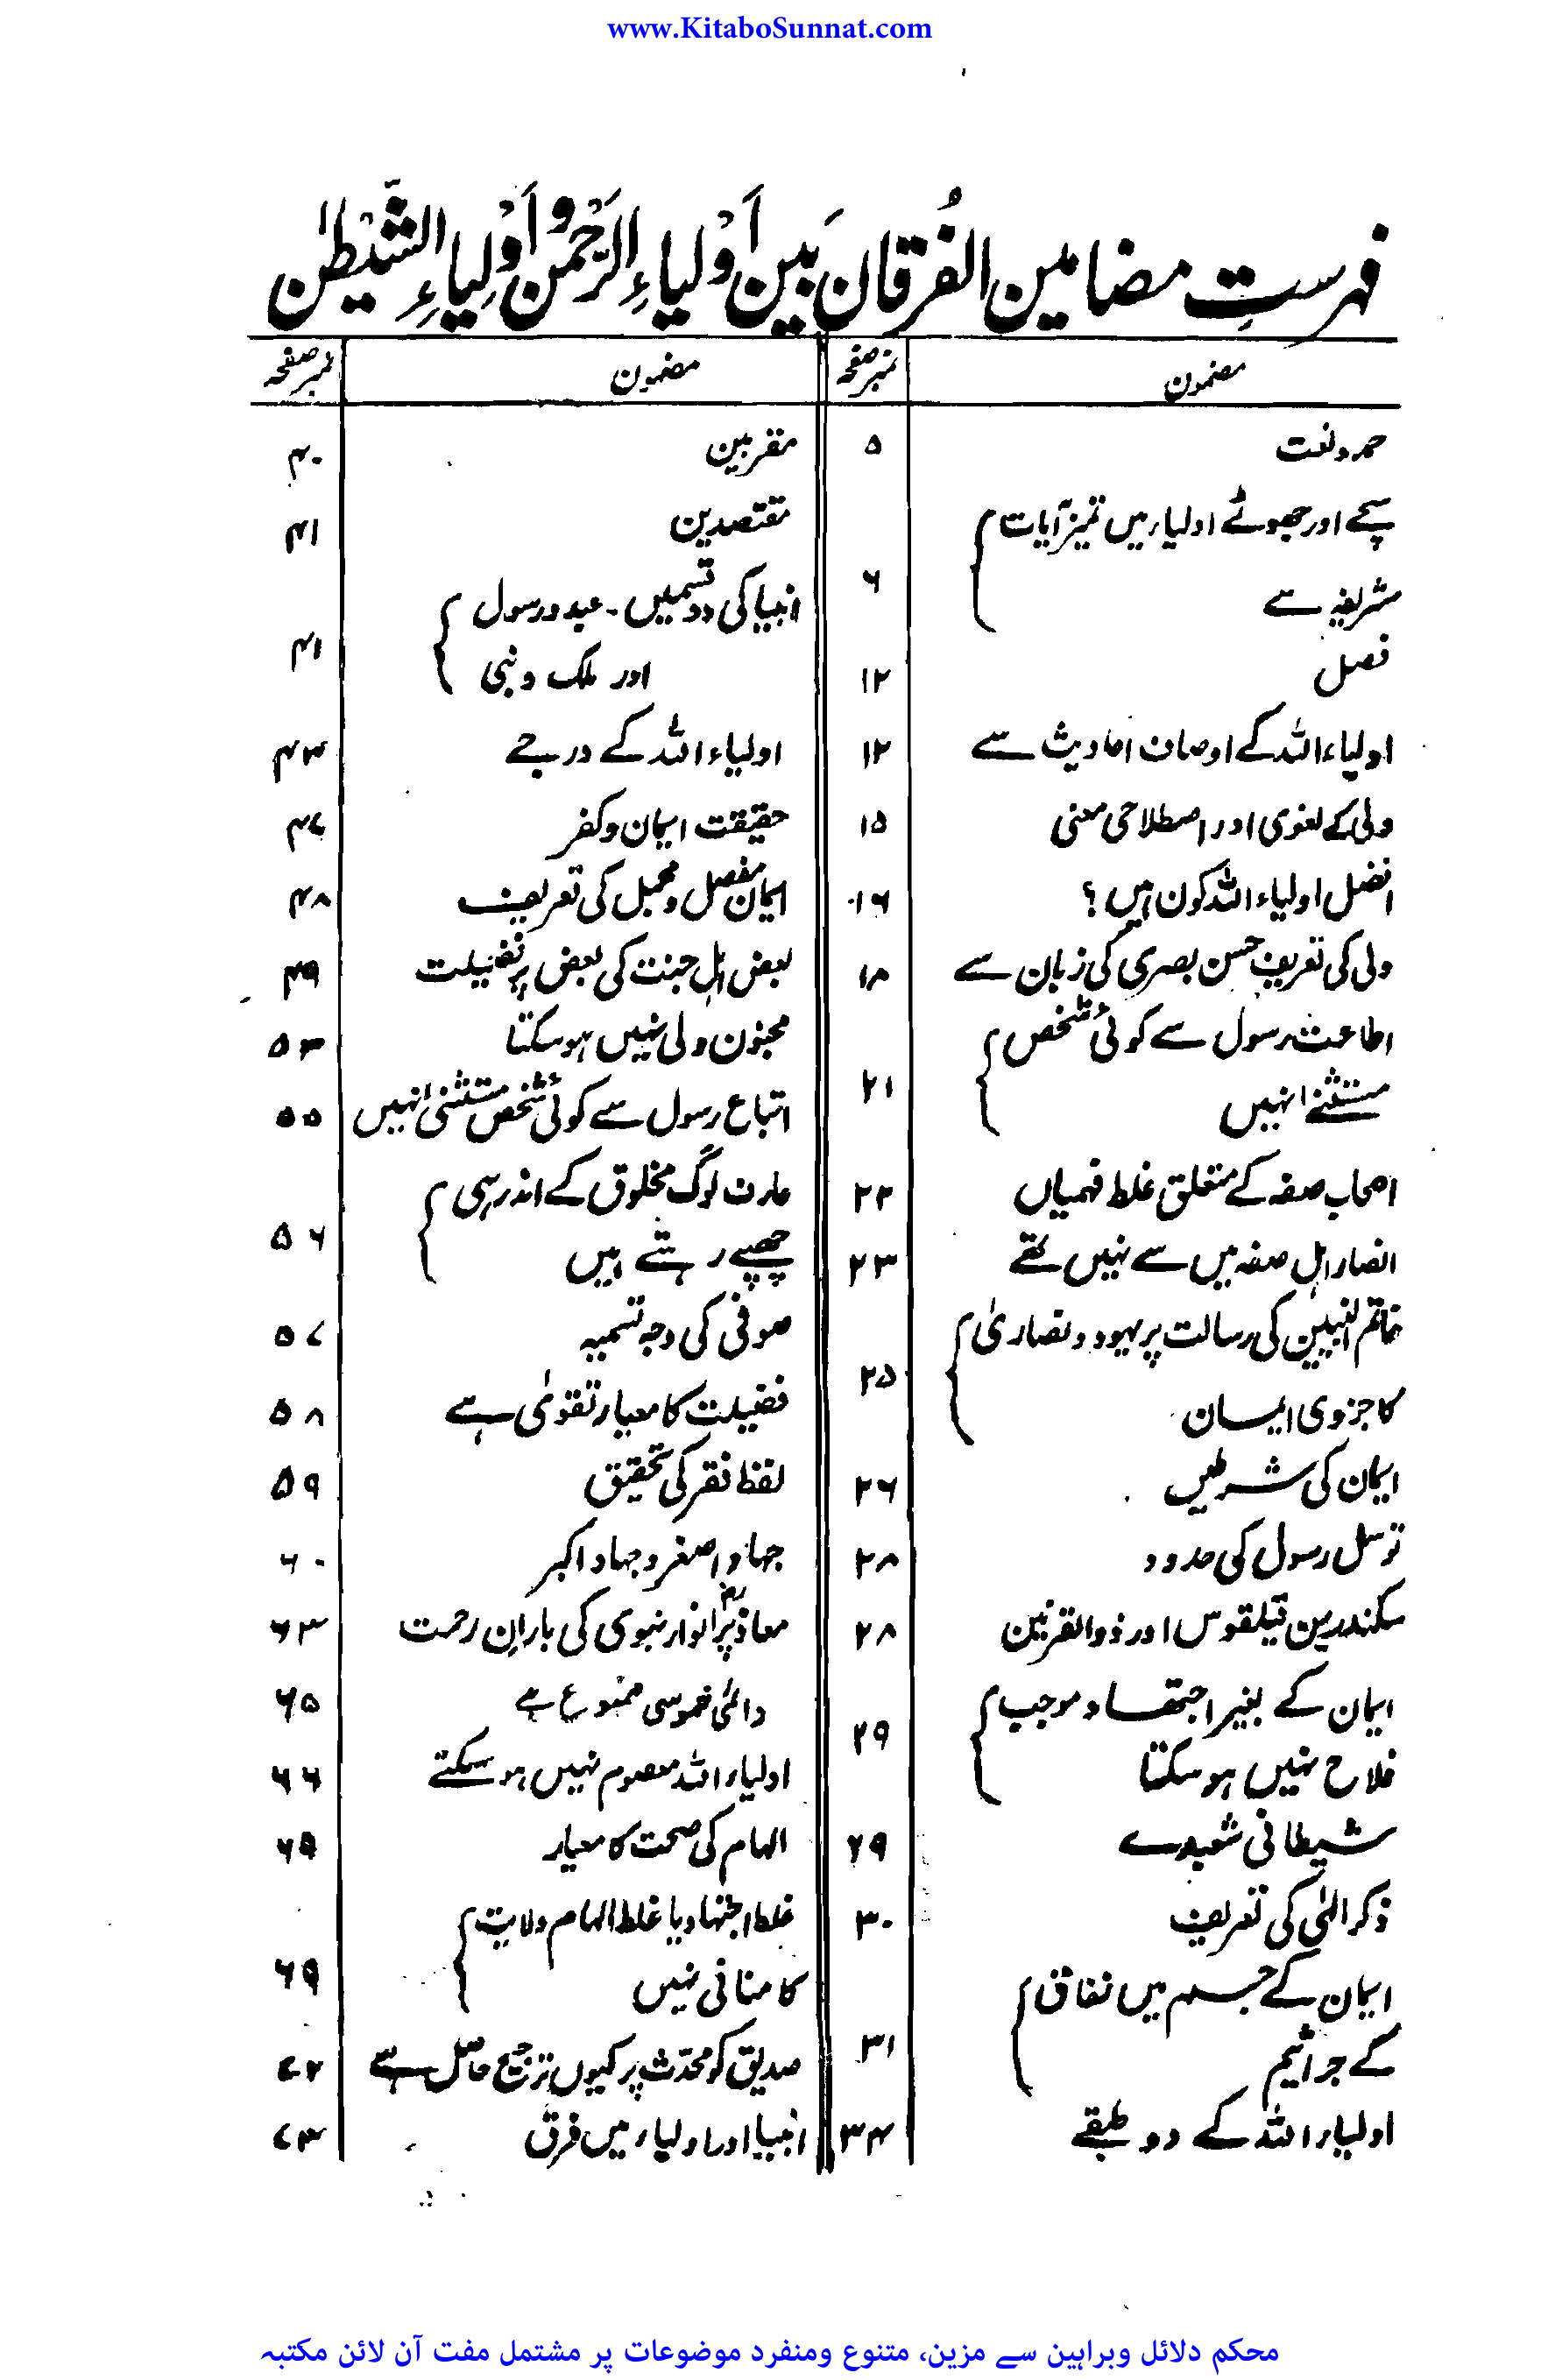 www.KitaboSunnat.com
فہرستِ مضامین الفُرقان بَین اَوْلیاءِ الرَّحْمٰن وَ اَوْلِیاءِ الشَّیْطٰن
مضمون نمبر صفحہ
حمد و نعت ۵
سچے اور جھوٹے اولیاء میں تمیز آیات
شریفہ سے ۶
فصل ۱۲
اولیاء اللہ کے اوصاف احادیث سے ۱۲
ولی کے لغوی اور اصطلاحی معنی ۱۵
افضل اولیاء اللہ کون ہیں؟ ۱۶
ولی کی تعریف حسن بصری کی زبان سے ۱۸
اطاعت رسول سے کوئی شخص
مستثنےٰ نہیں ۲۱
اصحاب صفہ کے متعلق غلط فہمیاں ۲۲
انصار اہل صفہ میں سے نہیں تھے ۲۳
خاتم النبیین کی رسالت پر یہود و نصاریٰ
کا جزوی ایمان ۲۵
ایمان کی شرطیں ۲۶
توسل رسول کی حدود ۲۸
سکندر بن فیلقوس اور ذوالقرنین ۲۸
ایمان کے بغیر اجتہاد موجب
فلاح نہیں ہو سکتا ۲۹
شیطانی شعبدے ۲۹
ذکر الٰہی کی تعریف ۳۰
ایمان کے جسم میں نفاق
کے جراثیم ۳۱
اولیاء اللہ کے دو طبقے ۳۴
مضمون نمبر صفحہ
مقربین ۴۰
مقتصدین ۴۱
انبیا کی دو قسمیں۔ عبد و رسول
اور ملک و نبی ۴۱
اولیاء اللہ کے درجے ۴۳
حقیقت ایمان و کفر ۴۷
ایمان مفصل و مجمل کی تعریف ۴۸
بعض اہل جنت کی بعض پر فضیلت ۴۹
مجنون ولی نہیں ہو سکتا ۵۳
اتباع رسول سے کوئی شخص مستثنیٰ نہیں ۵۵
عارف لوگ مخلوق کے اندر ہی
چھپے رہتے ہیں ۵۶
صوفی کی وجہ تسمیہ ۵۷
فضیلت کا معیار تقویٰ ہے ۵۸
لفظ فقر کی تحقیق ۵۹
جہاد اصغر و جہاد اکبر ۶۰
معاذؓ پر انوار نبوی کی بارانِ رحمت ۶۳
دائمی خموسی ممنوع ہے ۶۵
اولیاء اللہ معصوم نہیں ہو سکتے ۶۶
الہام کی صحت کا معیار ۶۹
غلط اجتہاد یا غلط الہام ولایت
کا منافی نہیں ۶۹
صدیق کو محدّث پر کیوں ترجیح حاصل ہے ۷۲
انبیا اور اولیاء میں فرق ۷۳
محکم دلائل وبراہین سے مزین، متنوع ومنفرد موضوعات پر مشتمل مفت آن لائن مکتبہ